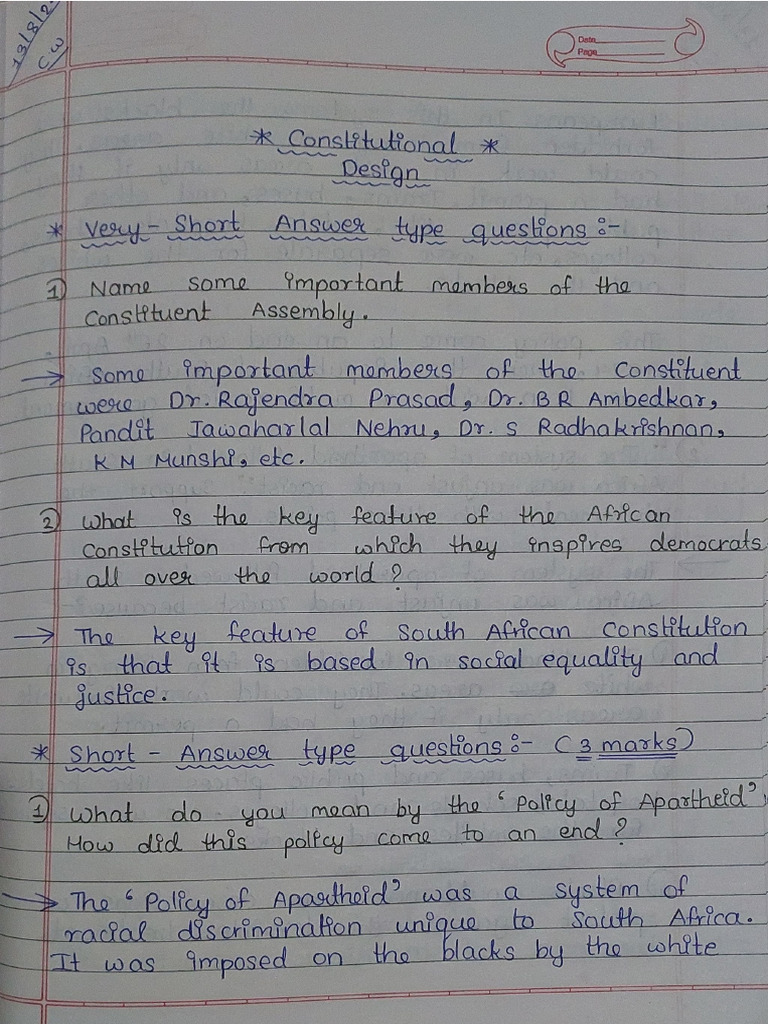 13/8/2
C.W
Date
Page
* Constitutional *
Design
* Very-Short Answer type questions :-
1) Name some important members of the
Constituent Assembly.
→ Some important members of the Constituent
were Dr. Rajendra Prasad, Dr. B R Ambedkar,
Pandit Jawaharlal Nehru, Dr. S Radhakrishnan,
K M Munshi, etc.
2) What is the key feature of the African
Constitution from which they inspires democrats
all over the world?
→ The key feature of South African Constitution
is that it is based in social equality and
justice.
* Short-Answer type questions :- (3 marks)
1) What do you mean by the 'Policy of Apartheid'
How did this policy come to an end?
→ The 'Policy of Apartheid' was a system of
racial discrimination unique to South Africa.
It was imposed on the blacks by the white